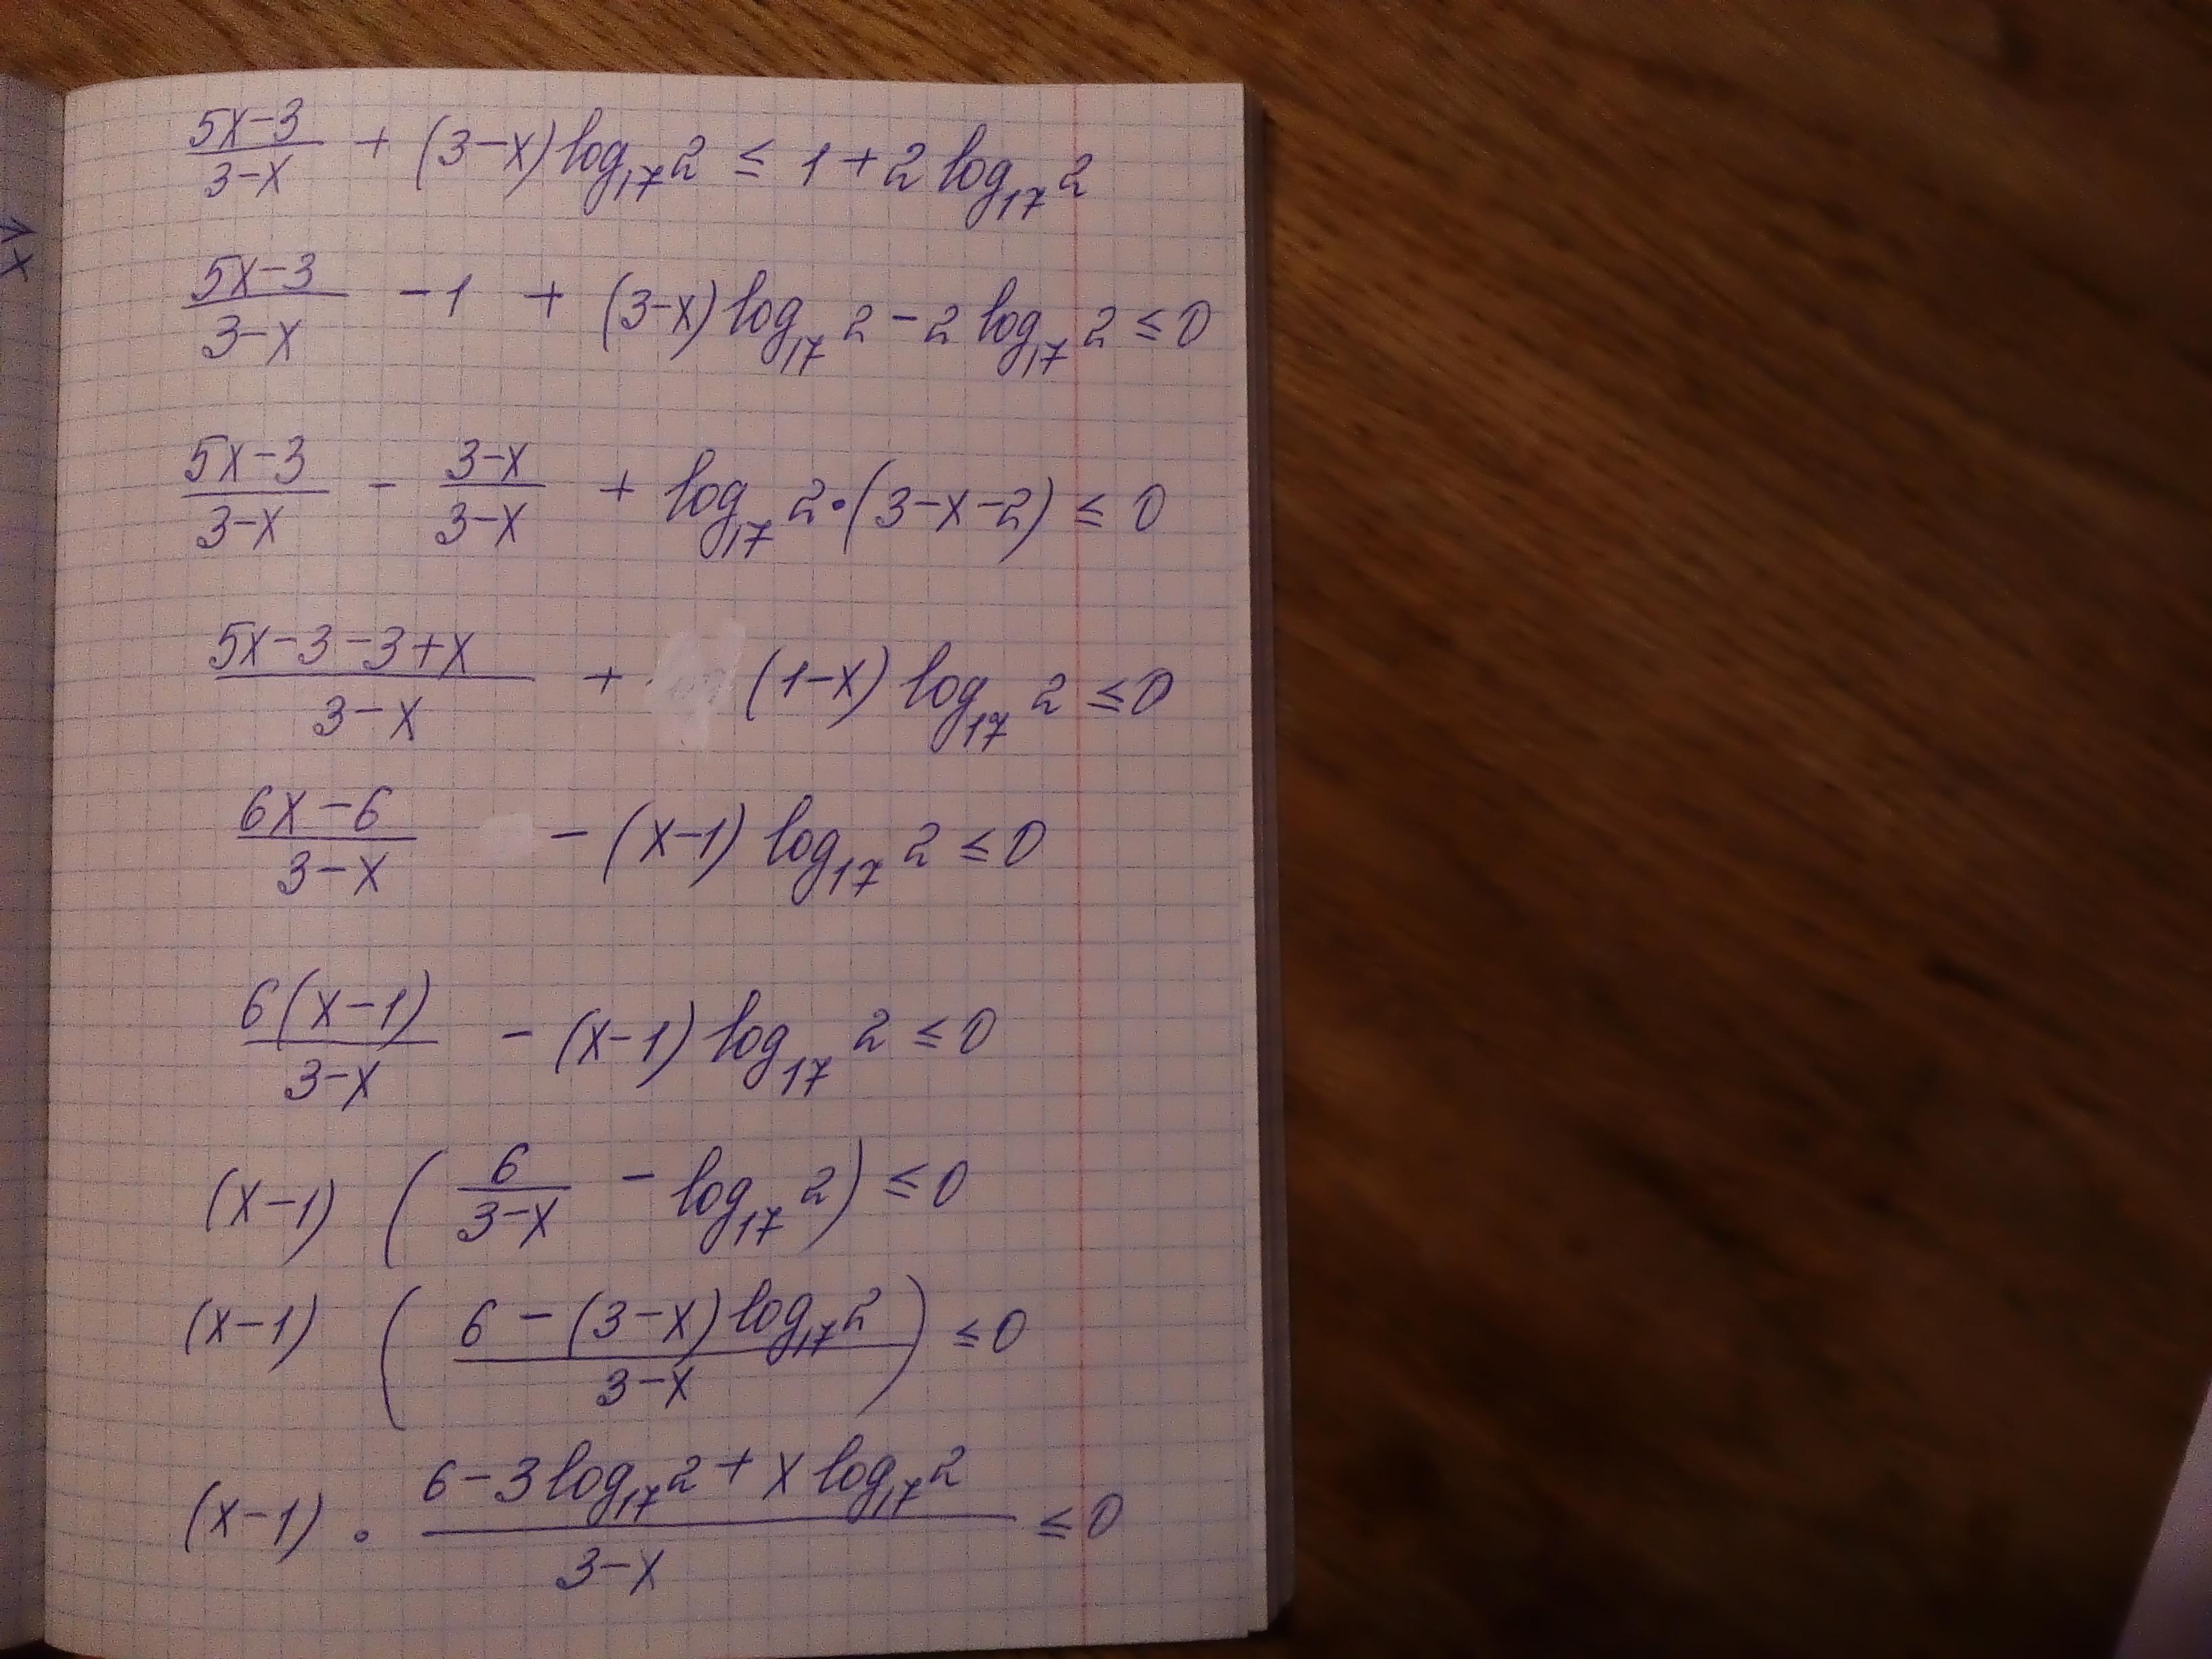 (5x-3)/(3-x) + (3-x) log₁₇ 2 ≤ 1 + 2 log₁₇ 2
(5x-3)/(3-x) - 1 + (3-x) log₁₇ 2 - 2 log₁₇ 2 ≤ 0
(5x-3)/(3-x) - (3-x)/(3-x) + log₁₇ 2 · (3-x-2) ≤ 0
(5x-3-3+x)/(3-x) + (1-x) log₁₇ 2 ≤ 0
(6x-6)/(3-x) - (x-1) log₁₇ 2 ≤ 0
6(x-1)/(3-x) - (x-1) log₁₇ 2 ≤ 0
(x-1) (6/(3-x) - log₁₇ 2) ≤ 0
(x-1) ((6 - (3-x) log₁₇ 2)/(3-x)) ≤ 0
(x-1) · (6 - 3 log₁₇ 2 + x log₁₇ 2)/(3-x) ≤ 0